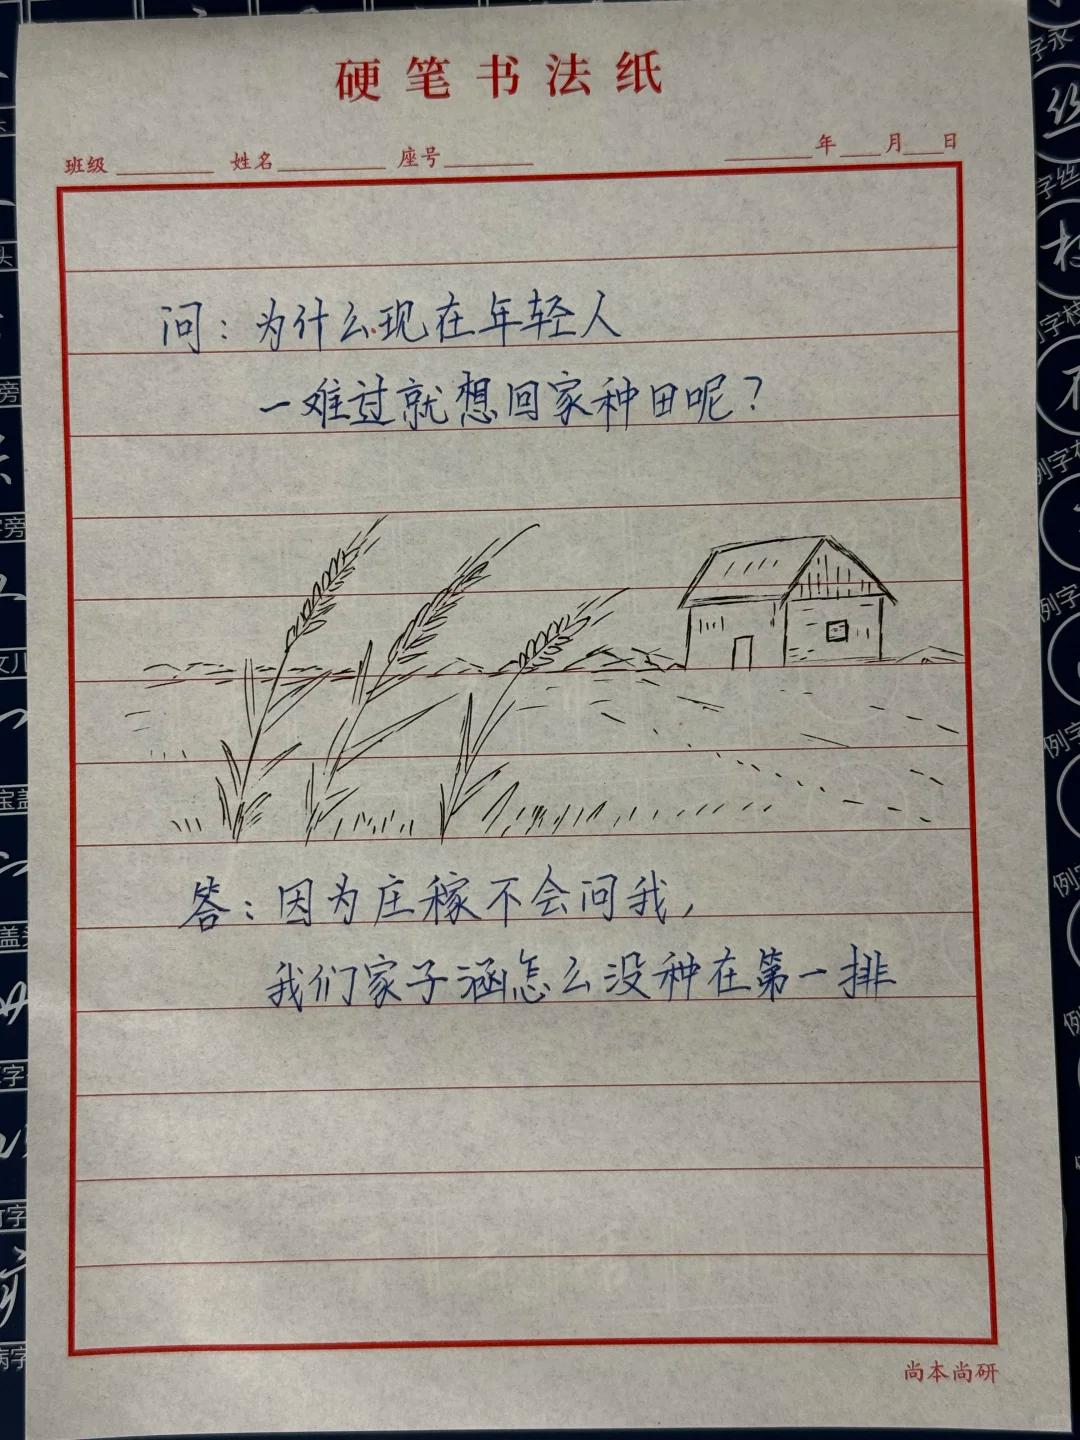 硬笔书法纸
班级 姓名 座号 年 月 日
问：为什么现在年轻人
一难过就想回家种田呢？
答：因为庄稼不会问我，
我们家子涵怎么没种在第一排
尚本尚研